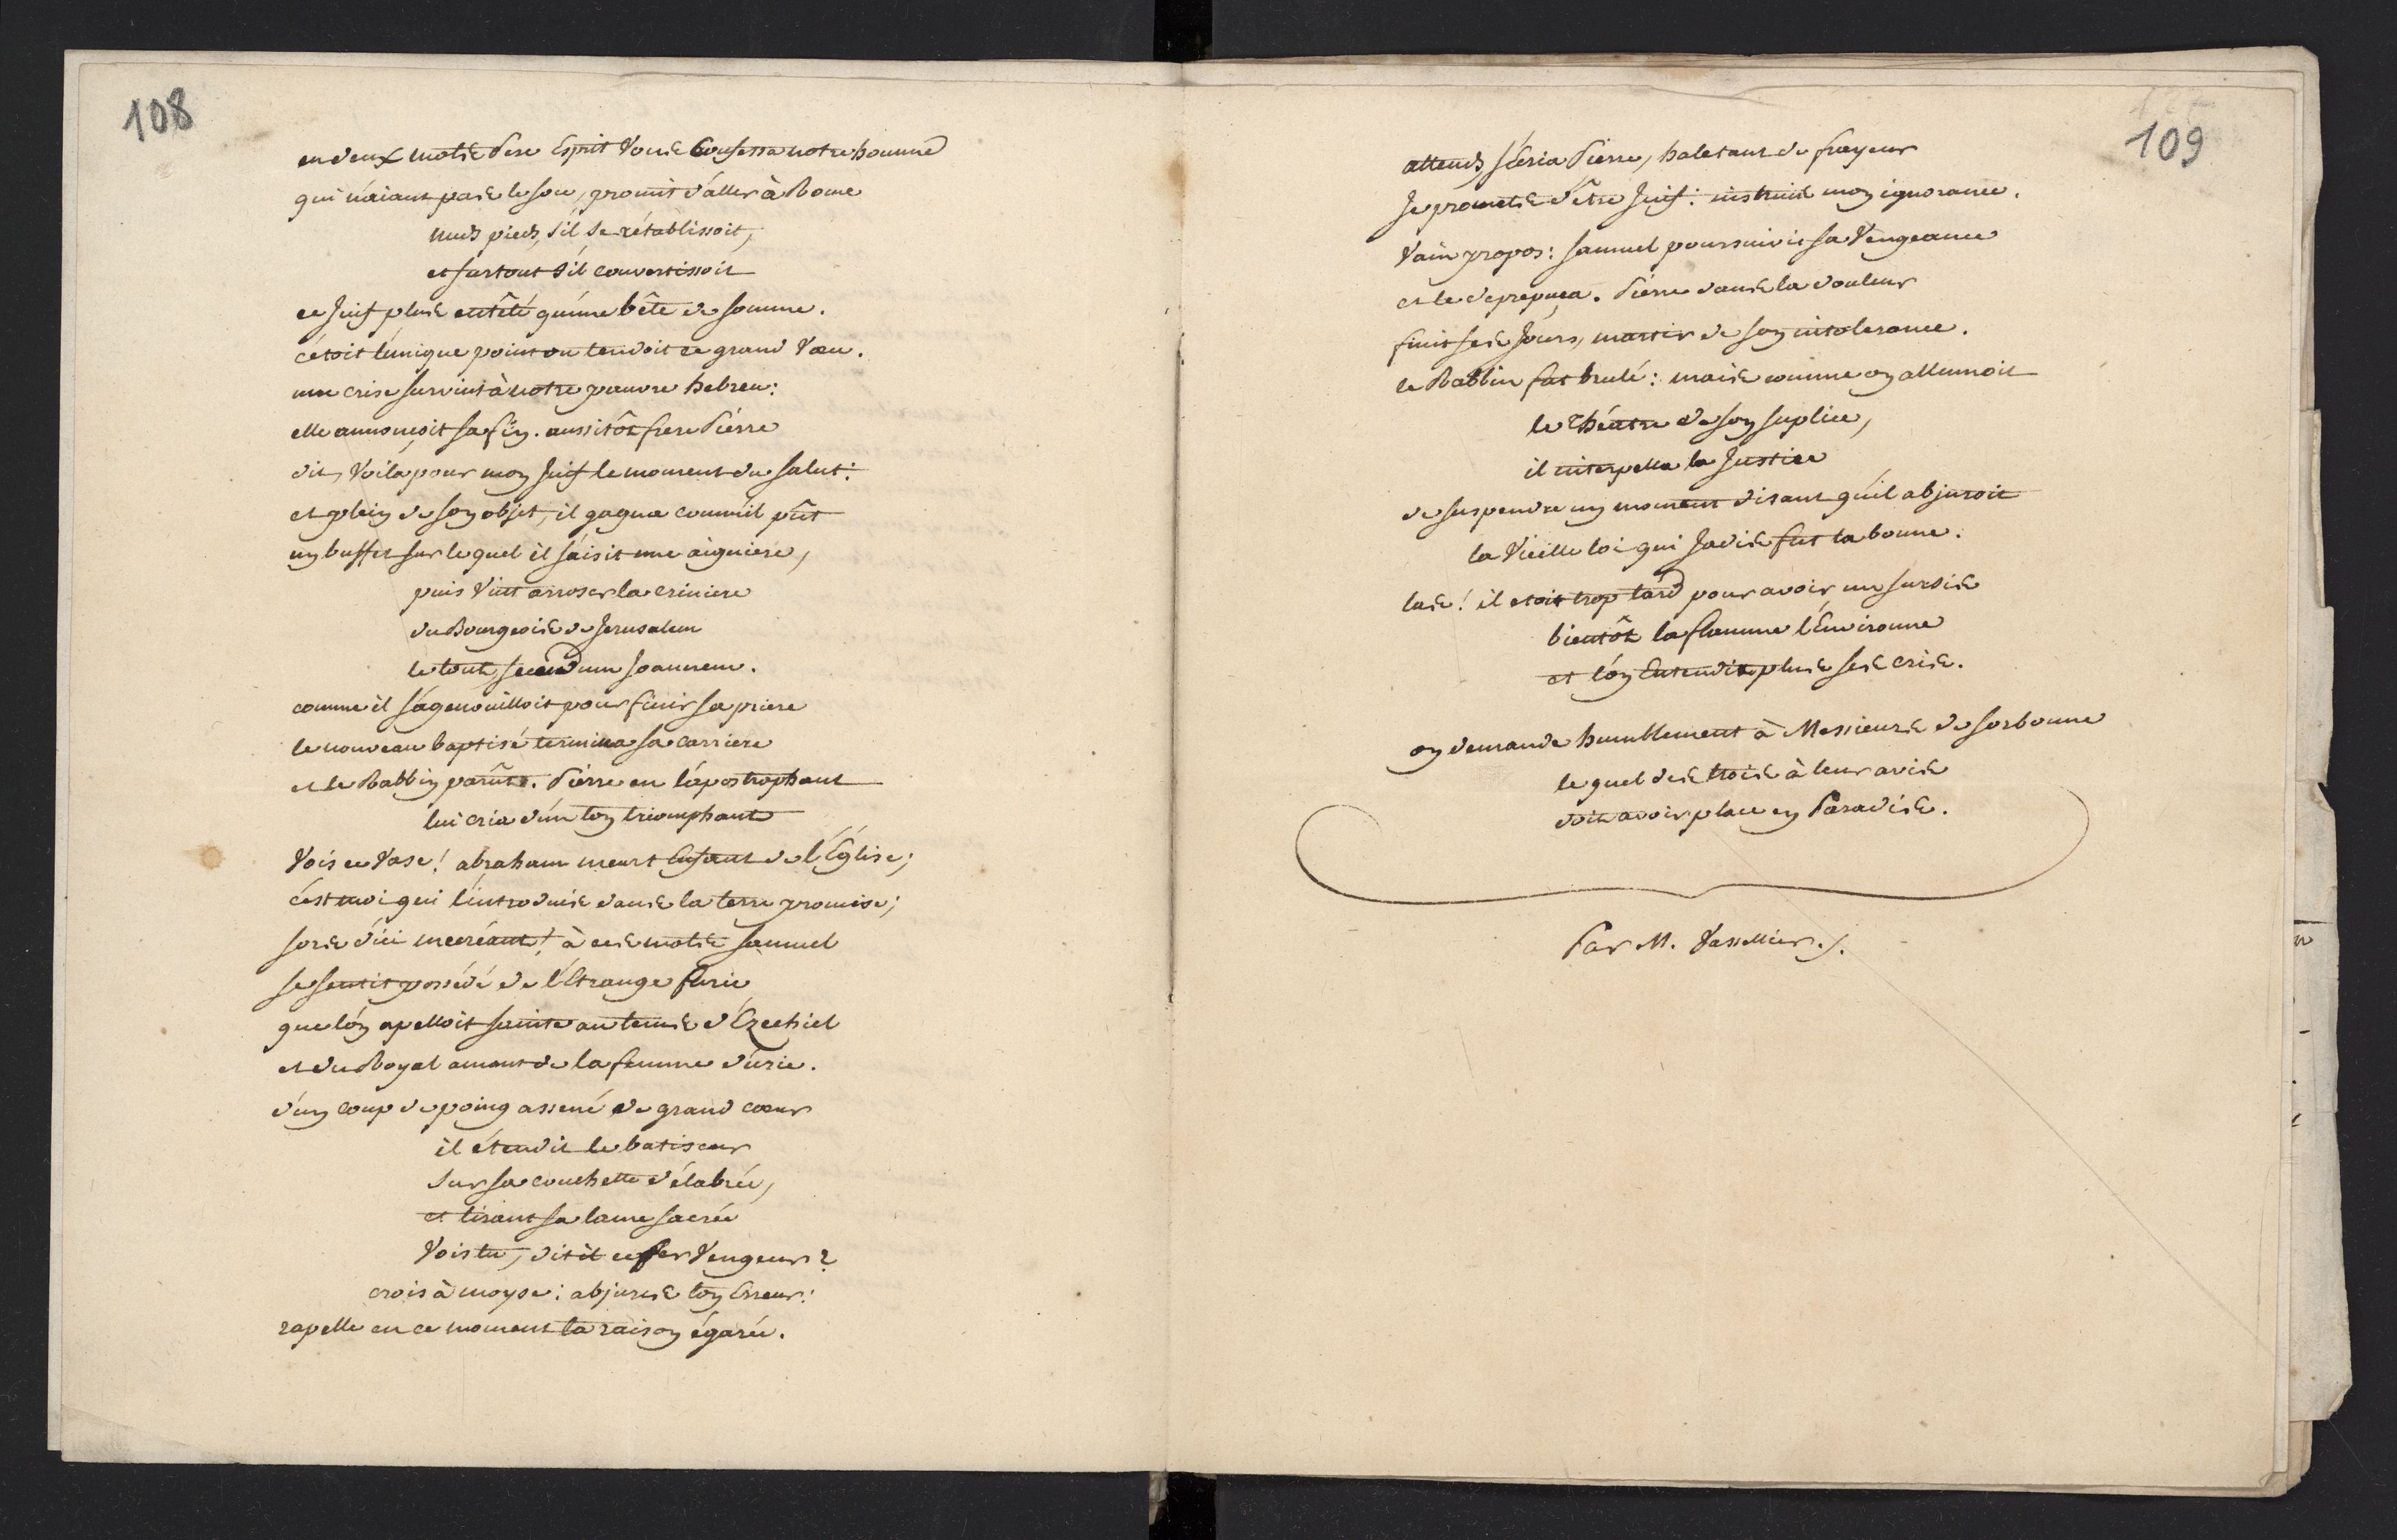 108
en deux mots Pere Esprit vous Confessa notre homme
qui n'aiant pas le sou, promit d'aller à Rome
nuds pieds, s'il se rétablissoit,
et surtout s'il convertissoit
ce Juif plus entêté qu'une bête de somme.
c'étoit l'unique point ou tendoit ce grand Vœu.
une crise survint à notre pauvre hebreu:
elle annonçoit sa fin. aussitôt frere Piérre
dit, Voilà pour mon Juif le moment du salut:
et plein de son objet, il gagna comm'il pût
un buffet sur lequel il saisit une aiguiere,
puis Vint arroser la criniere
du Bourgeois de Jerusalem
le tout, secundum Joannem.
comme il s'agenouilloit pour finir sa priere
le nouveau baptisé termina sa carriere
et le Rabbin parût. Piérre en l'apostrophant
lui cria d'un ton triomphant
Vois ce Vase! abraham meurt Enfant de l'Eglise;
c'est moi qui l'introduis dans la terre promise;
sors d'ici mecréant! à ces mots Samuel
se sentit possédé de l'Etrange furie
que l'on apelloit sainte au tems d'Ezechiel
et du Royal amant de la femme d'urie.
d'un coup de poing assené de grand cœur
il étendit le batiseur
sur sa couchette délabrée,
et tirant sa lame sacrée
Vois tu, dit il ce fer Vengeur?
crois à moyse: abjures ton Erreur:
rapelle en ce moment ta raison égarée.
109
attends, s'écria Piérre, haletant de frayeur
Je promets d'être Juif: instruis mon ignorance.
Vain propos: Samuel poursuivit sa Vengeance
et le déprepuça. Piérre dans la douleur
finit ses Jours, martir de son intolerance.
le Rabbin fut brulé: mais comme on allumoit
le Théatre de son suplice,
il interpella la Justice
de suspendre un moment disant qu'il abjuroit
la Vieille loi qui Jadis fut la bonne.
las! il etoit trop tard pour avoir un sursis
bientôt la flamme l'Environne
et l'on Entendit plus ses cris.
on demande humblement à Messieurs de Sorbonne
lequel des trois à leur avis
doit avoir place en Paradis.
Par M. Vasselier./.